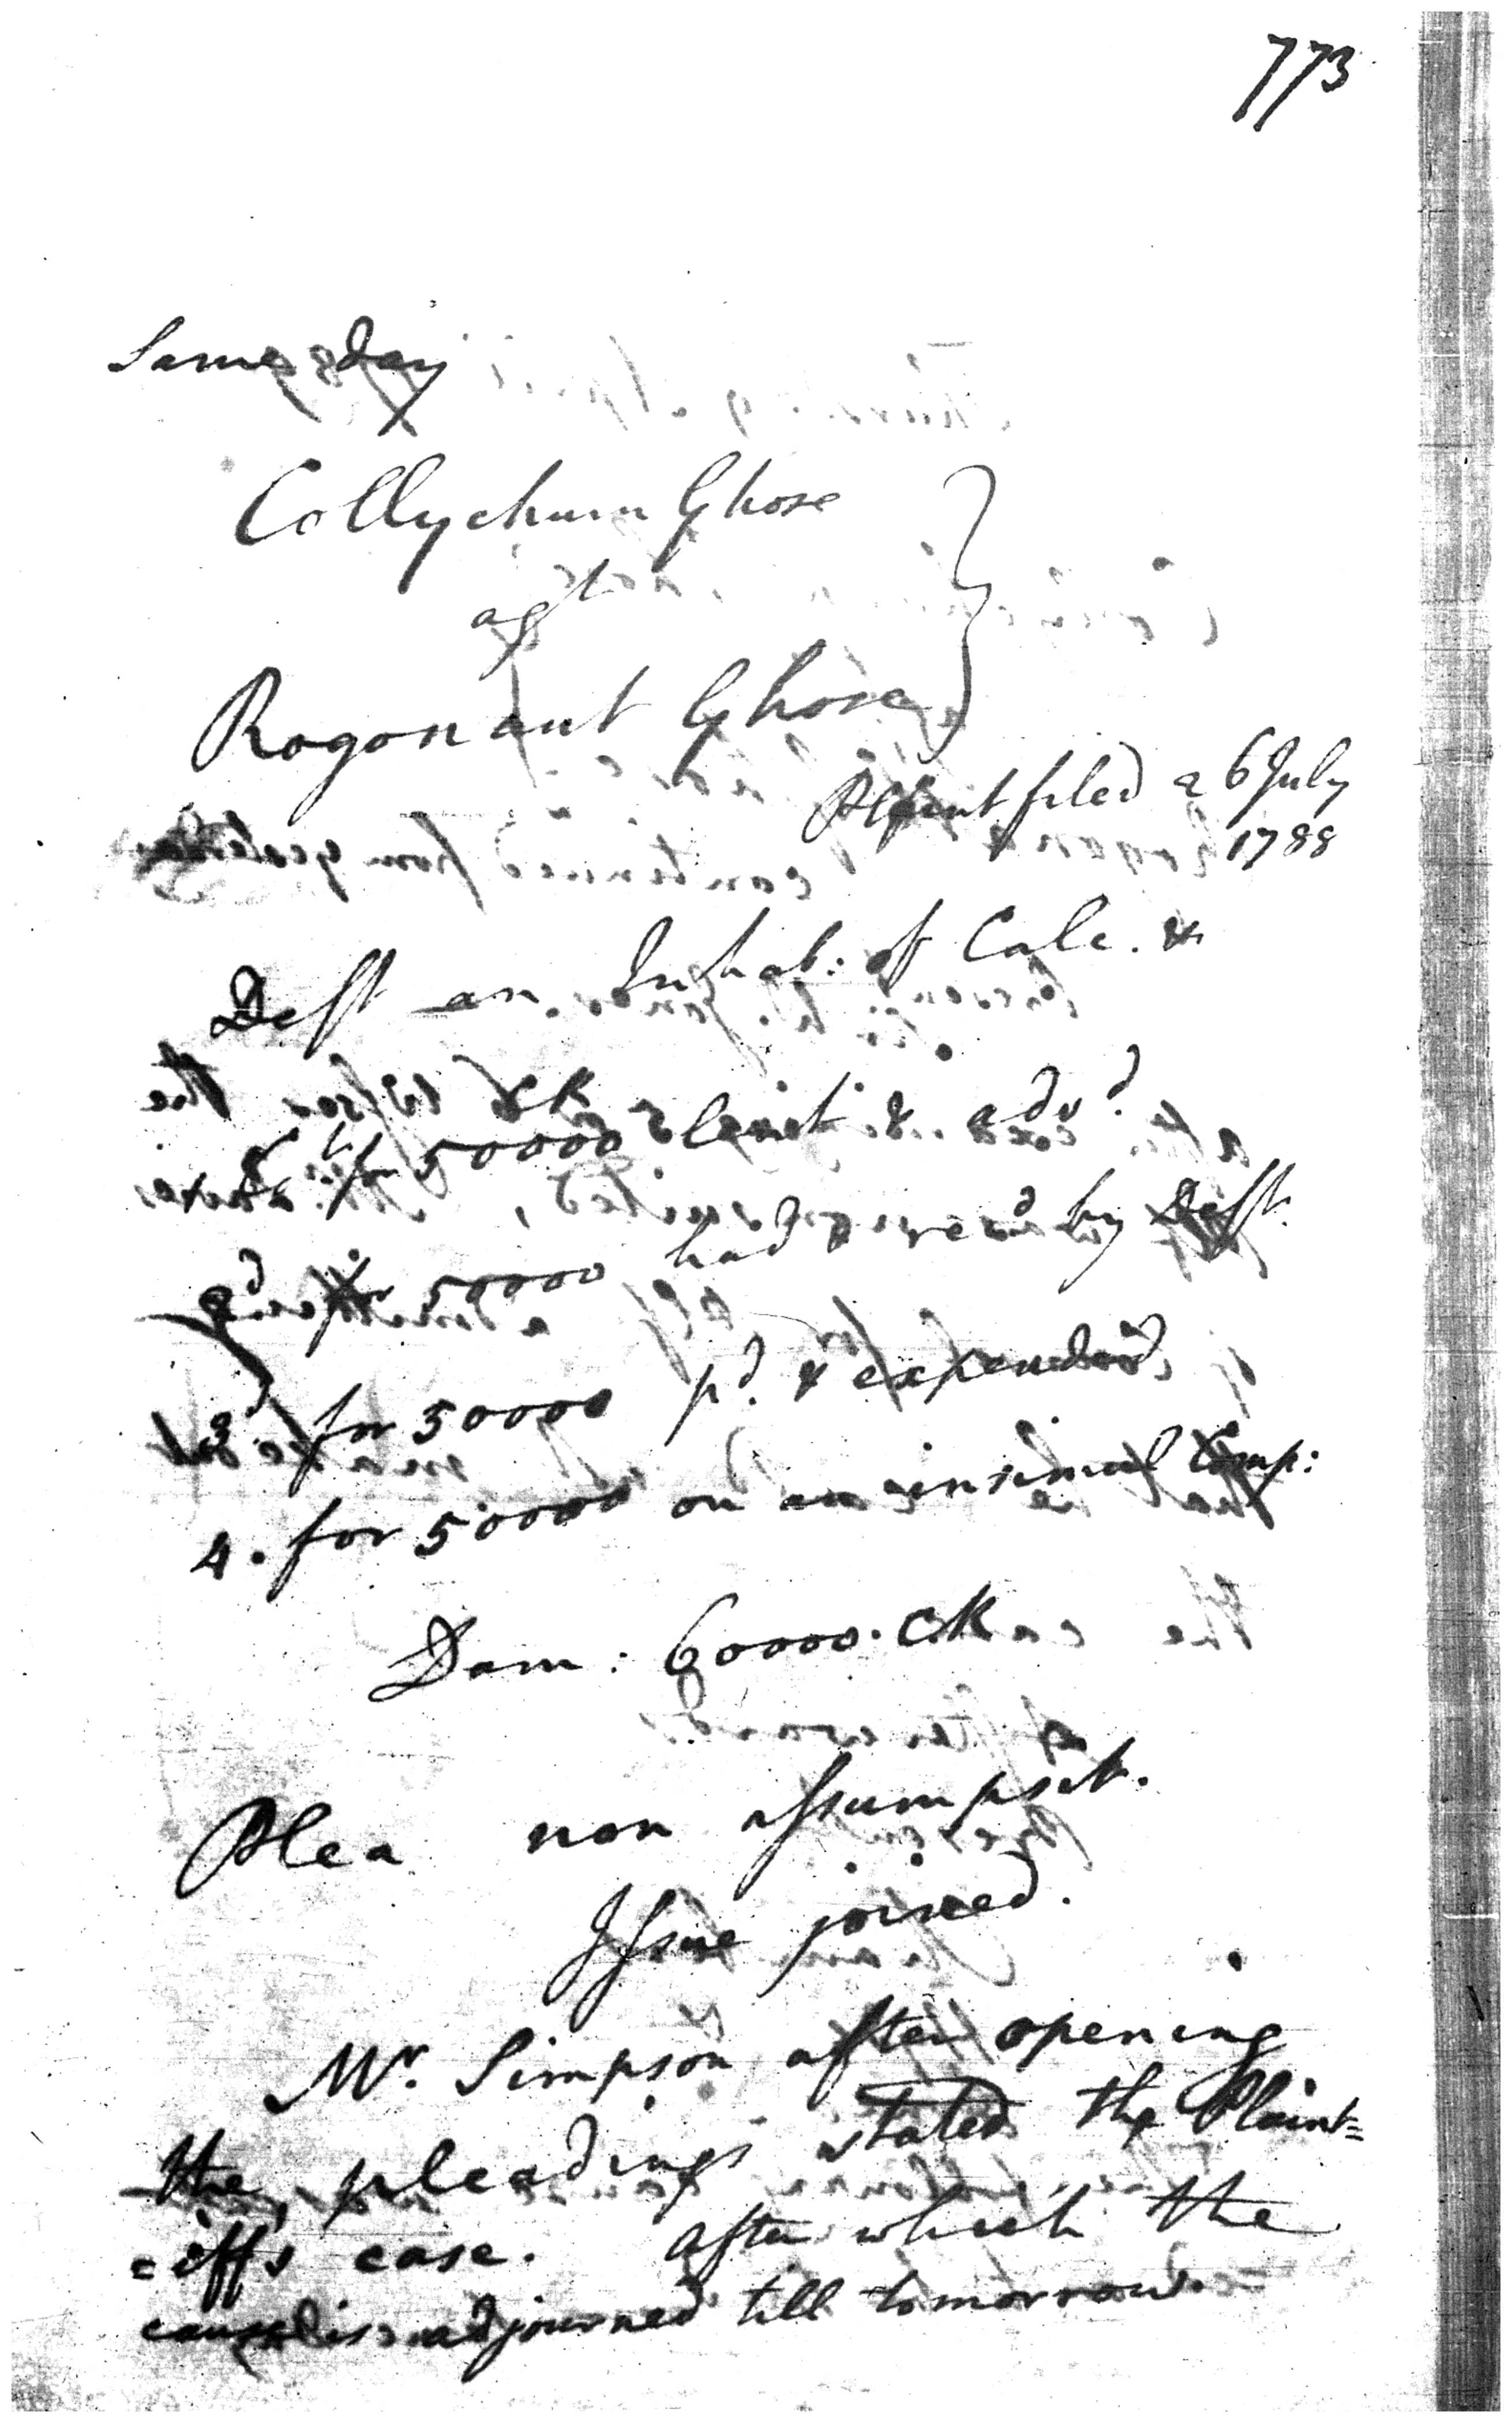 773
Same day
Collychurn Ghose
agt
Rogonaut Ghose
Plaint filed 26 July
1788
Deft an Inhab: of Calc. &
CR
for 50000 lent & advd.
2d for 50000 had & recd by Deft.
3d for 50000 pd. & expended,
4. for 50000 on an insimul Comp:
Dam: 60000. CR
Plea non assumpsit.
Issue joined.
Mr. Simpson after opening
the pleadings stated the Plaint=
=iffs case. After which the
cause is adjourned till tomorrow.